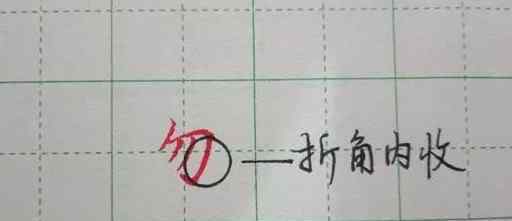 勿—折角内收